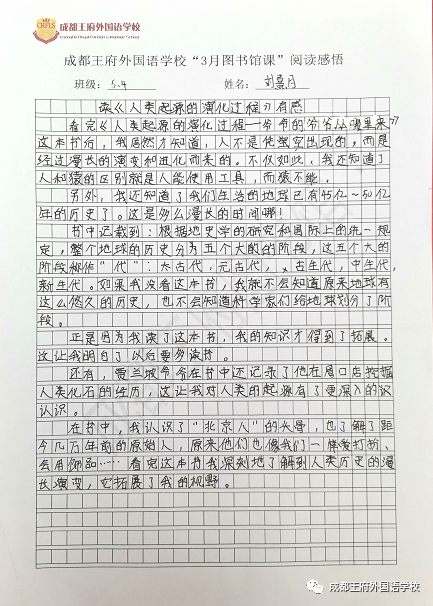 成都王府外国语学校
Chengdu Royal Foreign Language School
CRFLS
成都王府外国语学校“3月图书馆课”阅读感悟
班级： 5.4 姓名： 刘熹月
读《人类起源的演化过程》有感
看完《人类起源的演化过程—爷爷的爷爷从哪里来》
这本书后，我居然才知道，人不是凭空出现的，而是
经过漫长的演变和进化而来的。不仅如此，我还知道了
人和猿的区别就是人能使用工具，而猿不能。
另外，我还知道了我们生活的地球已有45亿~50亿
年的历史了。这是多么漫长的时间哪！
书中记载到：根据地史学的研究和国际上的统一规
定，整个地球的历史分为五个大的阶段，这五个大的
阶段被称“代”：太古代，元古代，古生代，中生代，
新生代。如果我没看这本书，我就不会知道原来地球有
这么悠久的历史，也不会知道科学家们给地球划分了阶
段。
正是因为我读了这本书，我的知识才得到了拓展。
这让我明白了以后要多读书。
还有，贾兰坡爷爷在书中还记录了他在周口店挖掘
人类化石的经历，这让我对人类的起源有了更深入的识
认识。
在书中，我认识了“北京人”的长辈，也了解了距
今几万年前的原始人，原来他们也像我们一样爱打扮，
会用饰品……看完这本书我深刻地了解到人类历史的漫
长演变，它拓展了我的视野。
成都王府外国语学校